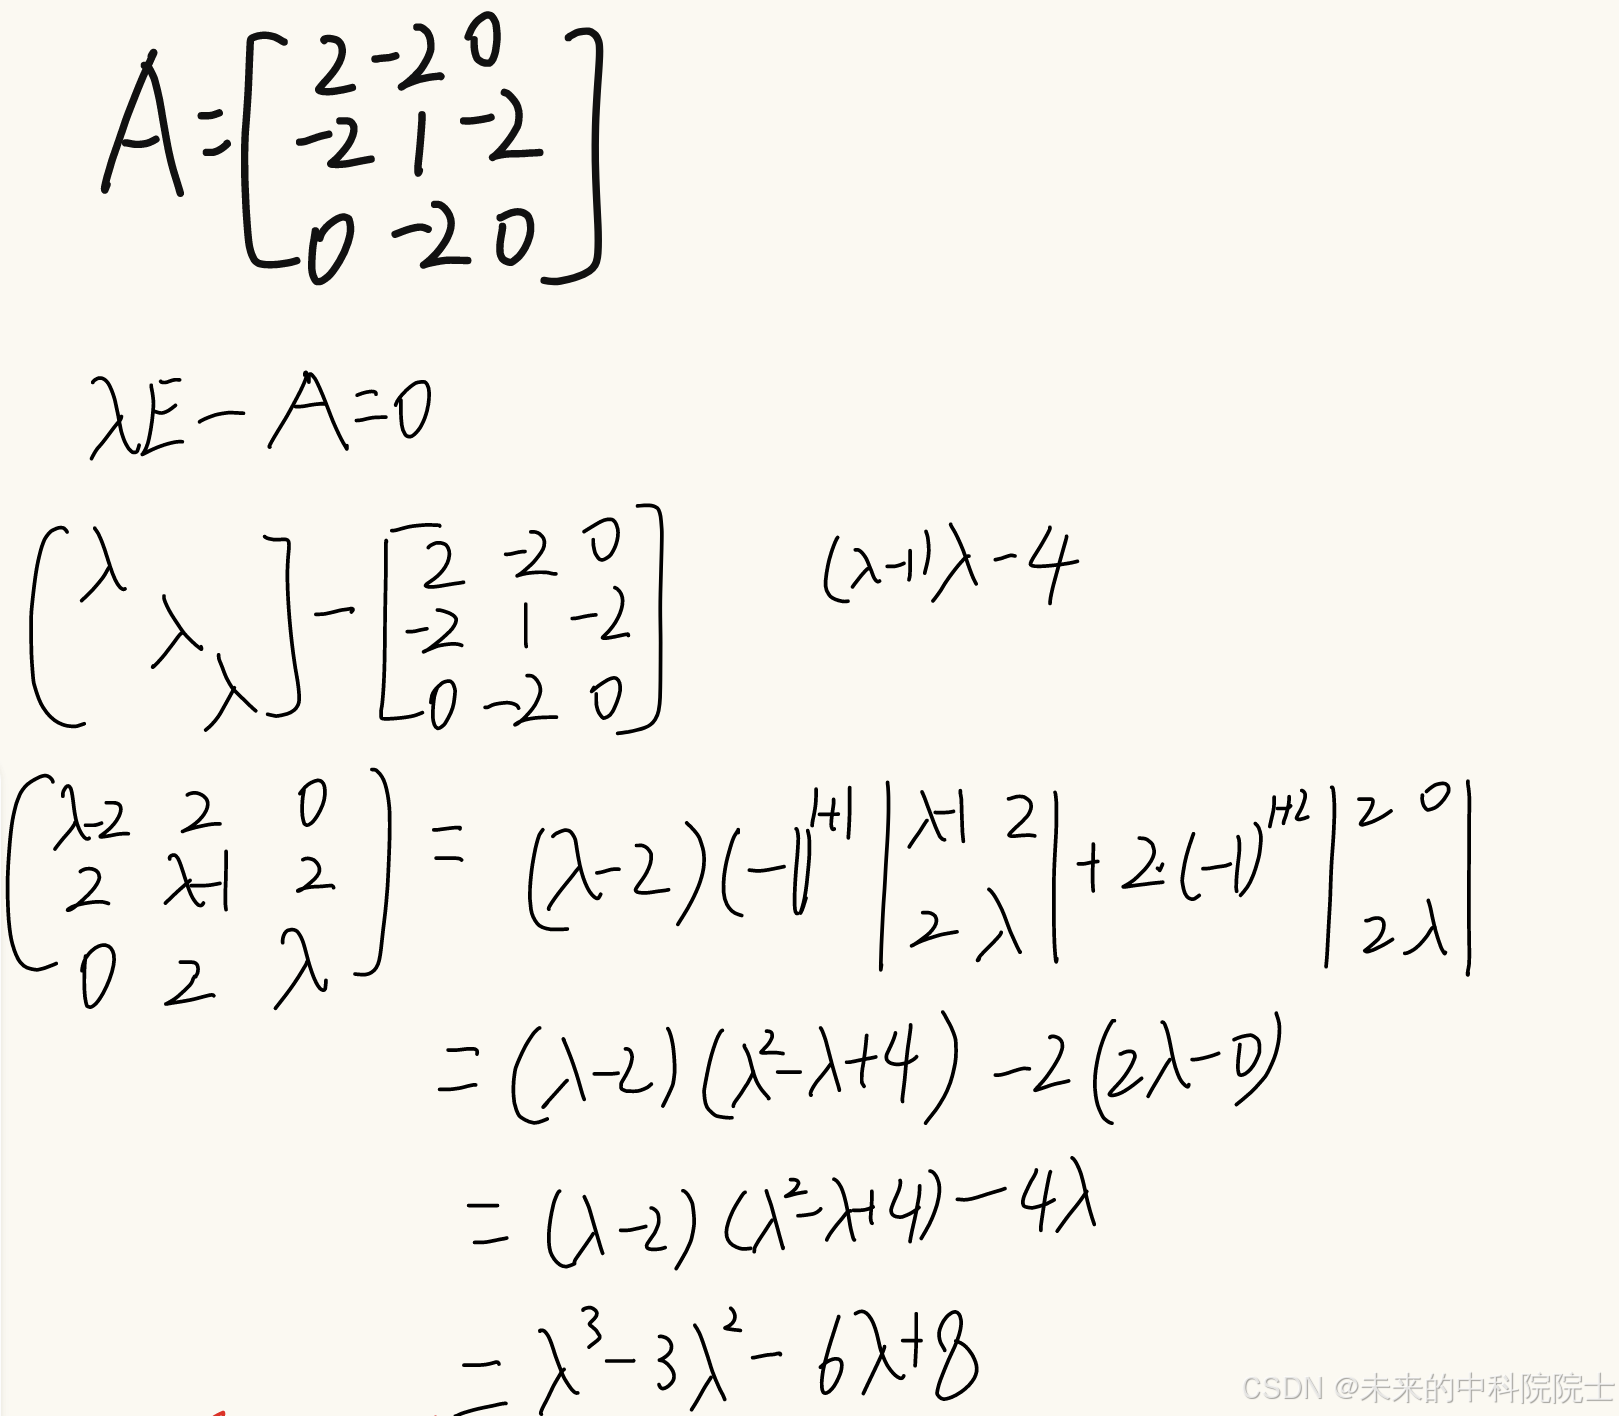 A = [ 2 -2 0
-2 1 -2
0 -2 0 ]
λE - A = 0
( λ λ λ ] - [ 2 -2 0
-2 1 -2
0 -2 0 ]
(λ-1)λ-4
( λ-2 2 0
2 λ-1 2
0 2 λ ) = (λ-2)(-1)^{1+1} | λ-1 2
2 λ | + 2·(-1)^{1+2} | 2 0
2 λ |
= (λ-2)(λ²-λ+4) -2(2λ-0)
= (λ-2)(λ²-λ+4)-4λ
= λ³-3λ²-6λ+8
CSDN @未来的中科院院士